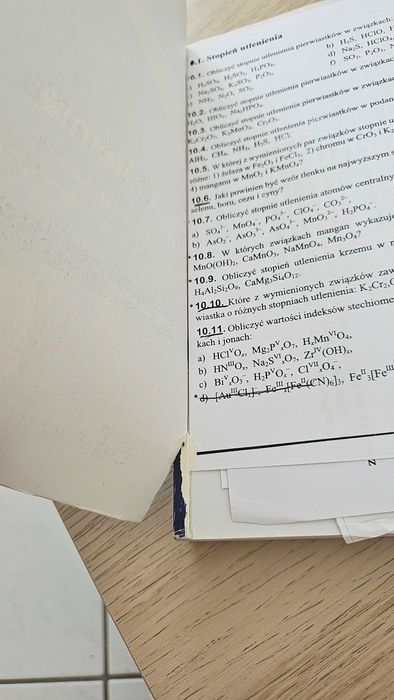 .1. Stopień utlenienia
.1. Obliczyć stopnie utlenienia pierwiastków w związkach
H₂SO₄, H₂SO₃, H₃PO₄, b) H₂S, HClO,
Na₂SO₄, K₂SO₃, P₂O₅, d) Na₂S, HClO₄
NH₃, N₂O, SO₂, f) SO₃, P₂O₃,
10.2. Obliczyć stopnie utlenienia pierwiastków w związkac
H₂O, HIO₃, Na₂HPO₄.
10.3. Obliczyć stopnie utlenienia pierwiastków w podan
K₂Cr₂O₇, K₂MnO₄, Cr₂O₃.
10.4. Obliczyć stopnie utlenienia pierwiastków w podan
AlH₃, CH₄, NH₃, H₂S, HCl.
10.5. W której z wymienionych par związków stopnie u
różne: 1) żelaza w Fe₂O₃ i FeCl₃, 2) chromu w CrO₃ i K₂
4) manganu w MnO₂ i KMnO₄?
10.6. Jaki powinien być wzór tlenku na najwyższym s
selenu, boru, cezu i cyny?
10.7. Obliczyć stopnie utlenienia atomów centralny
a) SO₄²⁻, MnO₄⁻, PO₄³⁻, ClO₄⁻, CO₃²⁻,
b) AsO₂⁻, AsO₃³⁻, AsO₄³⁻, MnO₄²⁻, H₂PO₄⁻.
• 10.8. W których związkach mangan wykazuje
MnO(OH)₂, CaMnO₃, NaMnO₄, Mn₃O₄?
• 10.9. Obliczyć stopień utlenienia krzemu w n
H₄Al₂Si₂O₉, CaMg₃Si₄O₁₂.
• 10.10. Które z wymienionych związków zaw
wiastka o różnych stopniach utlenienia: K₂Cr₂O
10.11. Obliczyć wartości indeksów stechiome
kach i jonach:
a) HClⱽOₓ, Mg₂PⱽₓO₇, HₓMnⱽᴵO₄,
b) HNᴵᴵᴵOₓ, Na₂SⱽᴵₓO₇, Zrᴵⱽ(OH)ₓ,
c) BiⱽₓO₃⁻, H₂PⱽOₓ⁻, ClⱽᴵᴵₓO₄⁻,
• d) [AuᴵᴵᴵClₓ]⁻, Feᴵᴵᴵₓ[Feᴵᴵ(CN)₆]₃, Feᴵᴵ₃[Feᴵᴵᴵ
N